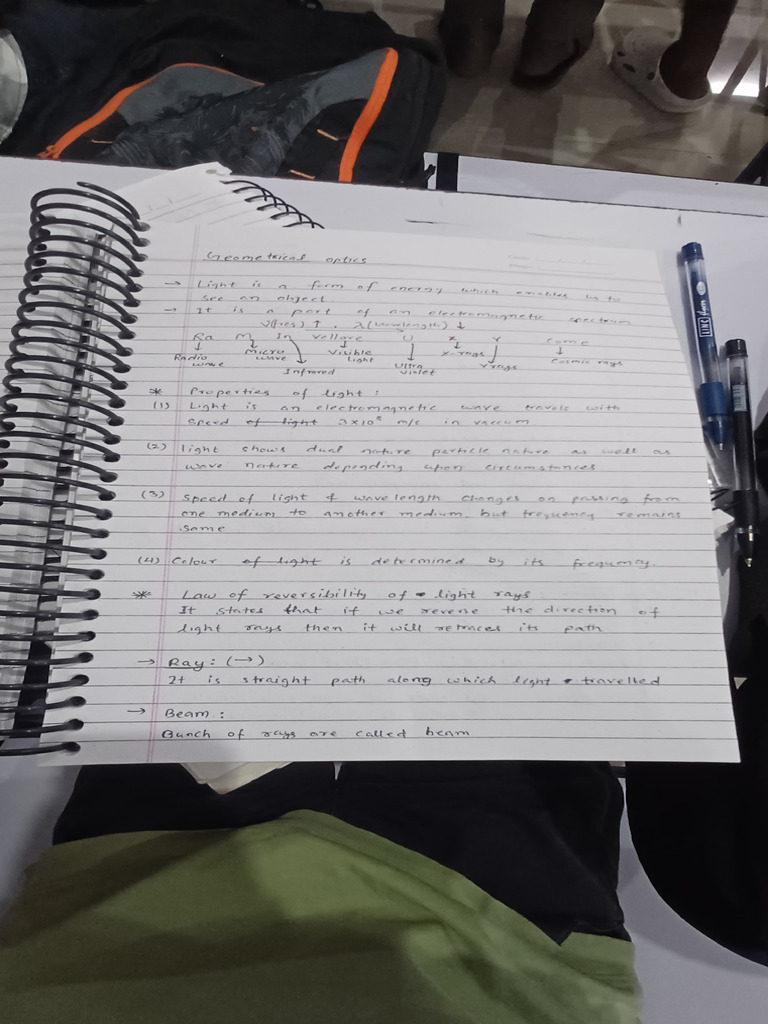 Geometrical optics
→ Light is a form of energy which enables us to
see an object.
→ It is a part of an electromagnetic spectrum
ν(freq) ↑ , λ(wavelength) ↓
Ra M In vellore U x γ come
Radio wave Micro wave Infrared Visible light Ultra violet x-rays γ rays Cosmic rays
* Properties of light :
(1) Light is an electromagnetic wave travels with
speed of light 3×10⁸ m/s in vaccum
(2) light shows dual nature particle nature as well as
wave nature depending upon circumstances
(3) speed of light & wavelength changes on passing from
one medium to another medium, but frequency remains
same
(4) Colour of light is determined by its frequency.
* Law of reversibility of light rays
It states that if we reverse the direction of
light rays then it will retraces its path
→ Ray: (→)
It is straight path along which light travelled
→ Beam :
Bunch of rays are called beam
LINC